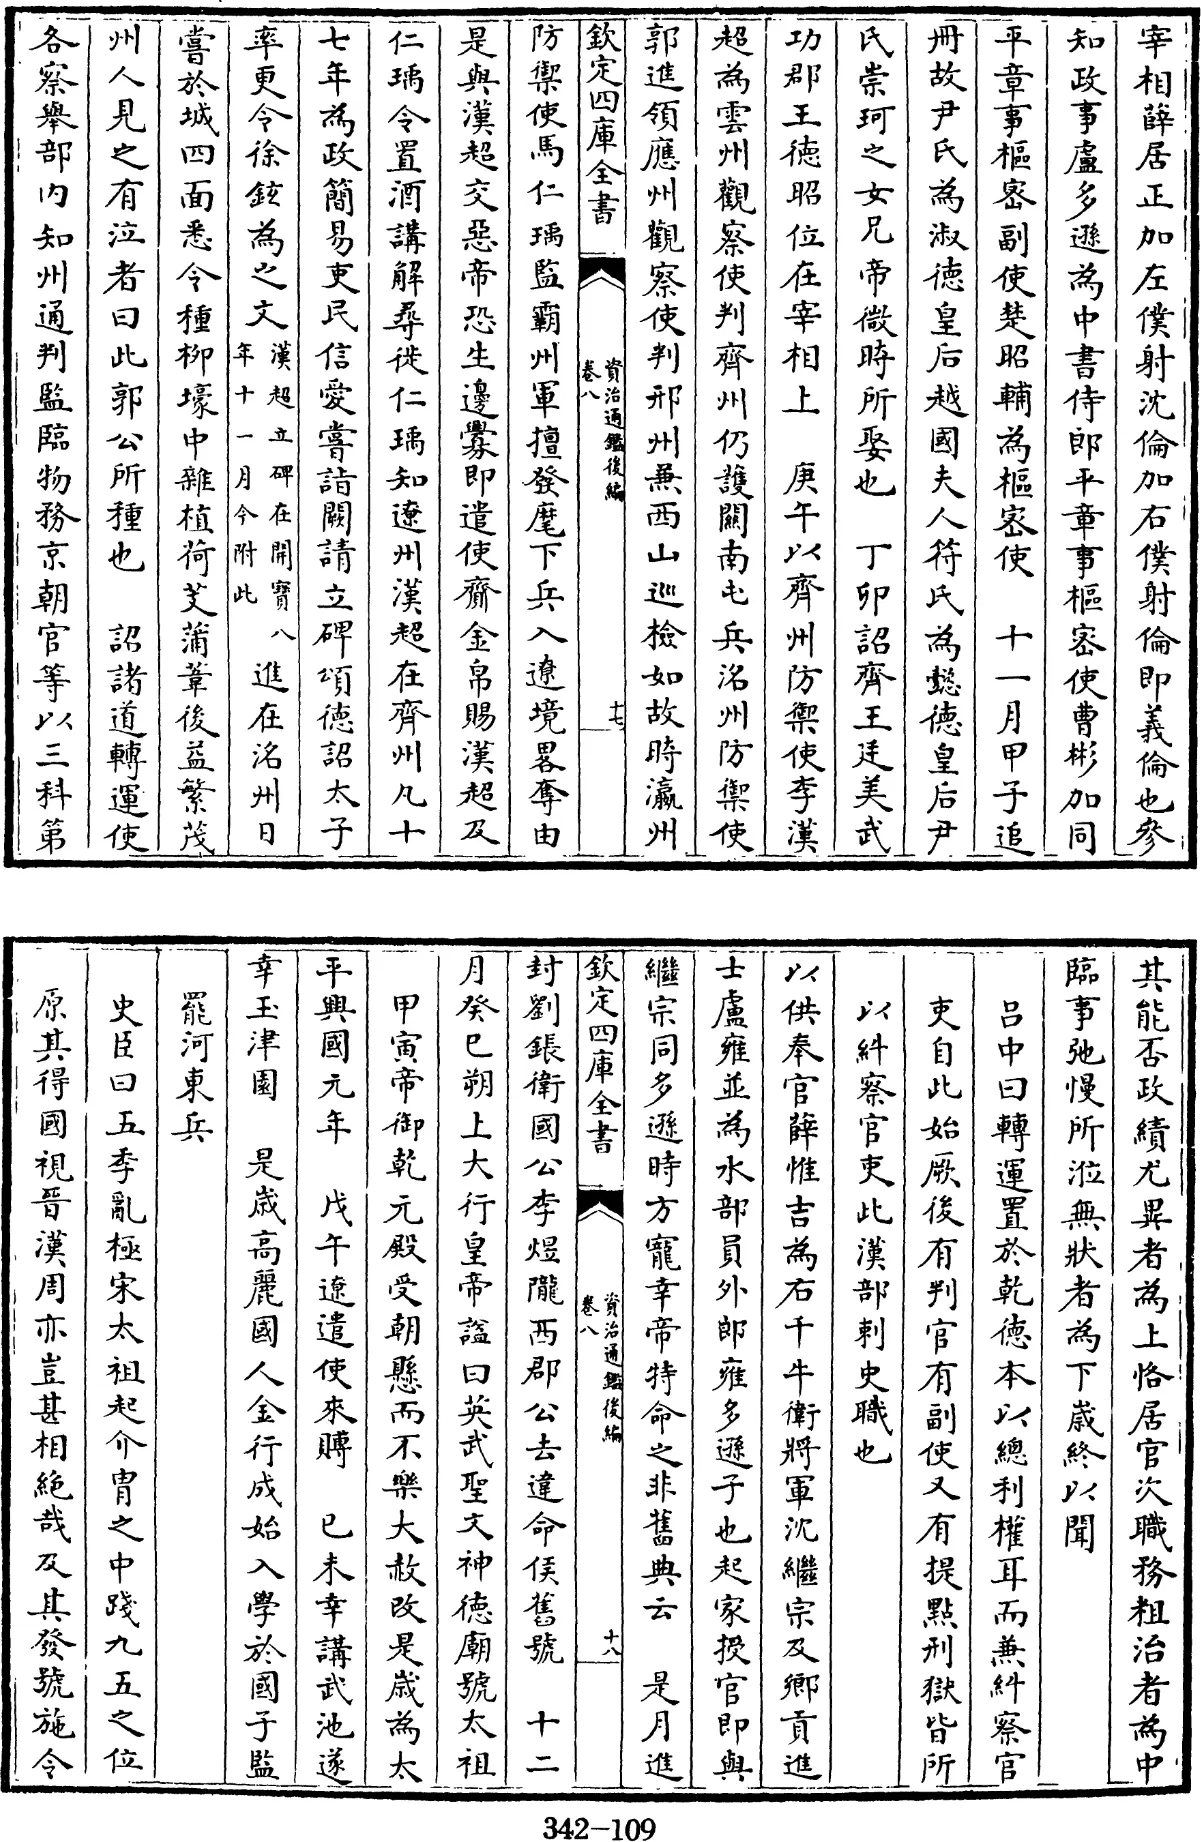 宰相薛居正加左僕射沈倫加右僕射倫即義倫也參
知政事盧多遜為中書侍郎平章事樞宻使曹彬加同
平章事樞宻副使楚昭輔為樞宻使　十一月甲子追
冊故尹氏為淑德皇后越國夫人符氏為懿德皇后尹
氏崇珂之女兄帝微時所娶也　丁卯詔齊王廷美武
功郡王德昭位在宰相上　庚午以齊州防禦使李漢
超為雲州觀察使判齊州仍護關南屯兵洺州防禦使
郭進領應州觀察使判邢州兼西山巡檢如故時瀛州
欽定四庫全書
資治通鑑後編
卷八
十七
防禦使馬仁瑀監霸州軍擅發麾下兵入遼境畧奪由
是與漢超交惡帝恐生邊釁即遣使齎金帛賜漢超及
仁瑀令置酒講解尋徙仁瑀知遼州漢超在齊州凡十
七年為政簡易吏民信愛嘗詣闕請立碑頌德詔太子
率更令徐鉉為之文
漢超立碑在開寶八
年十一月今附此
進在洺州日
嘗於城四面悉令種柳壕中雜植荷芰蒲葦後益繁茂
州人見之有泣者曰此郭公所種也　詔諸道轉運使
各察舉部内知州通判監臨物務京朝官等以三科第
其能否政績尤異者為上恪居官次職務粗治者為中
臨事弛慢所涖無狀者為下歲終以聞
呂中曰轉運置於乾德本以總利權耳而兼糾察官
吏自此始厥後有判官有副使又有提點刑獄皆所
以糾察官吏此漢部刺史職也
以供奉官薛惟吉為右千牛衛將軍沈繼宗及鄉貢進
士盧雍並為水部員外郎雍多遜子也起家授官即與
繼宗同多遜時方寵幸帝特命之非舊典云　是月進
欽定四庫全書
資治通鑑後編
卷八
十八
封劉鋹衛國公李煜隴西郡公去違命侯舊號　十二
月癸巳朔上大行皇帝諡曰英武聖文神德廟號太祖
甲寅帝御乾元殿受朝懸而不樂大赦改是歲為太
平興國元年　戊午遼遣使來賻　已未幸講武池遂
幸玉津園　是歲高麗國人金行成始入學於國子監
罷河東兵
史臣曰五季亂極宋太祖起介胄之中踐九五之位
原其得國視晉漢周亦豈甚相絶哉及其發號施令
342-109